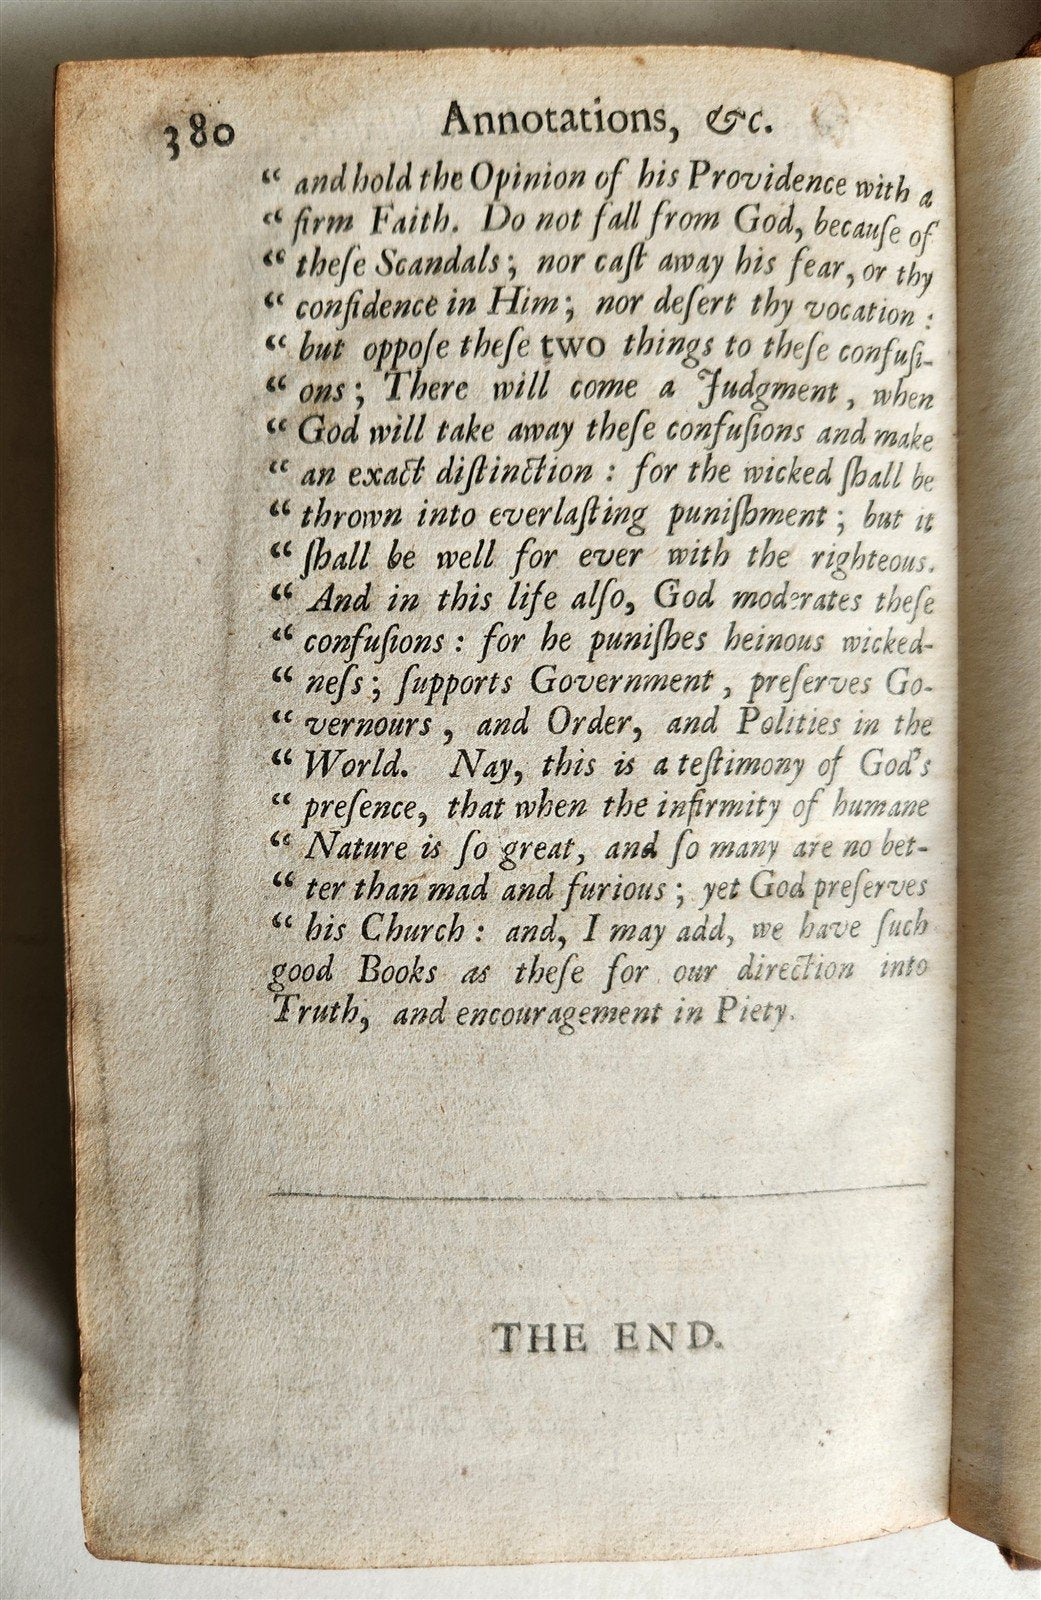 380
Annotations, &c.
“ and hold the Opinion of his Providence with a
“ firm Faith. Do not fall from God, becauſe of
“ theſe Scandals; nor caſt away his fear, or thy
“ confidence in Him; nor deſert thy vocation:
“ but oppoſe theſe two things to theſe confuſi-
“ ons; There will come a Judgment, when
“ God will take away theſe confuſions and make
“ an exact diſtinction: for the wicked ſhall be
“ thrown into everlaſting puniſhment; but it
“ ſhall be well for ever with the righteous.
“ And in this life alſo, God moderates theſe
“ confuſions: for he puniſhes heinous wicked-
“ neſs; ſupports Government, preſerves Go-
“ vernours, and Order, and Polities in the
“ World. Nay, this is a teſtimony of God's
“ preſence, that when the infirmity of humane
“ Nature is ſo great, and ſo many are no bet-
“ ter than mad and furious; yet God preſerves
“ his Church: and, I may add, we have ſuch
good Books as theſe for our direction into
Truth, and encouragement in Piety.
THE END.